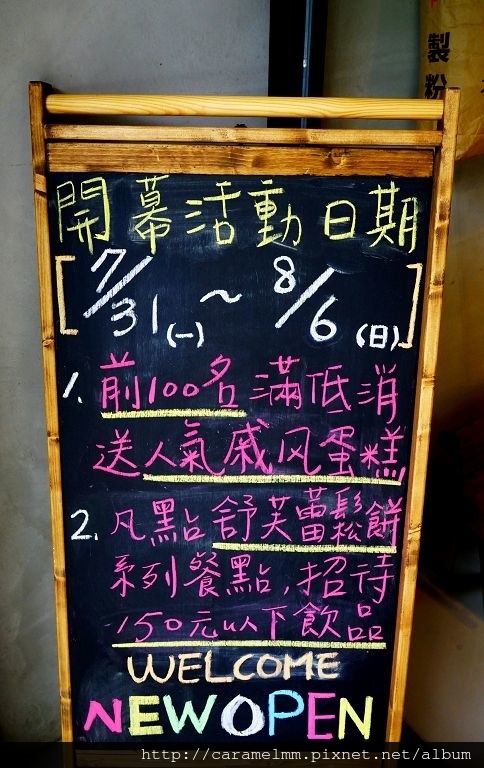 製粉
開幕活動日期
[7/31(一)~8/6(日)]
1. 前100名滿低消
送人氣戚风蛋糕
2. 凡點舒芙蕾鬆餅
系列餐點,招待
150元以下飲品
WELCOME
NEW OPEN
http://caramelmm.pixnet.net/album